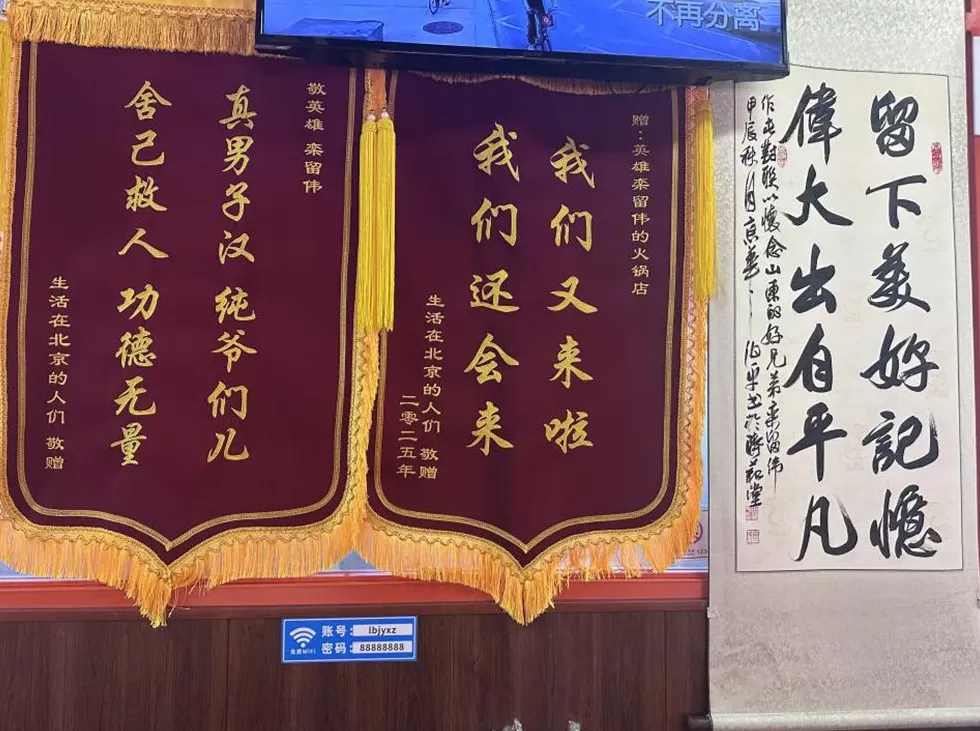 不再分离
敬英雄 栾留伟
真男子汉 纯爷们儿
舍己救人 功德无量
生活在北京的人们 敬赠
赠：英雄栾留伟的火锅店
我们又来啦
我们还会来
生活在北京的人们 敬赠
二零二五年
留下美好記憶
偉大出自平凡
作此對联以懷念山東的好兄弟栾留伟
甲辰秋月京華
免费WiFi
账号：lbjyxz
密码：88888888